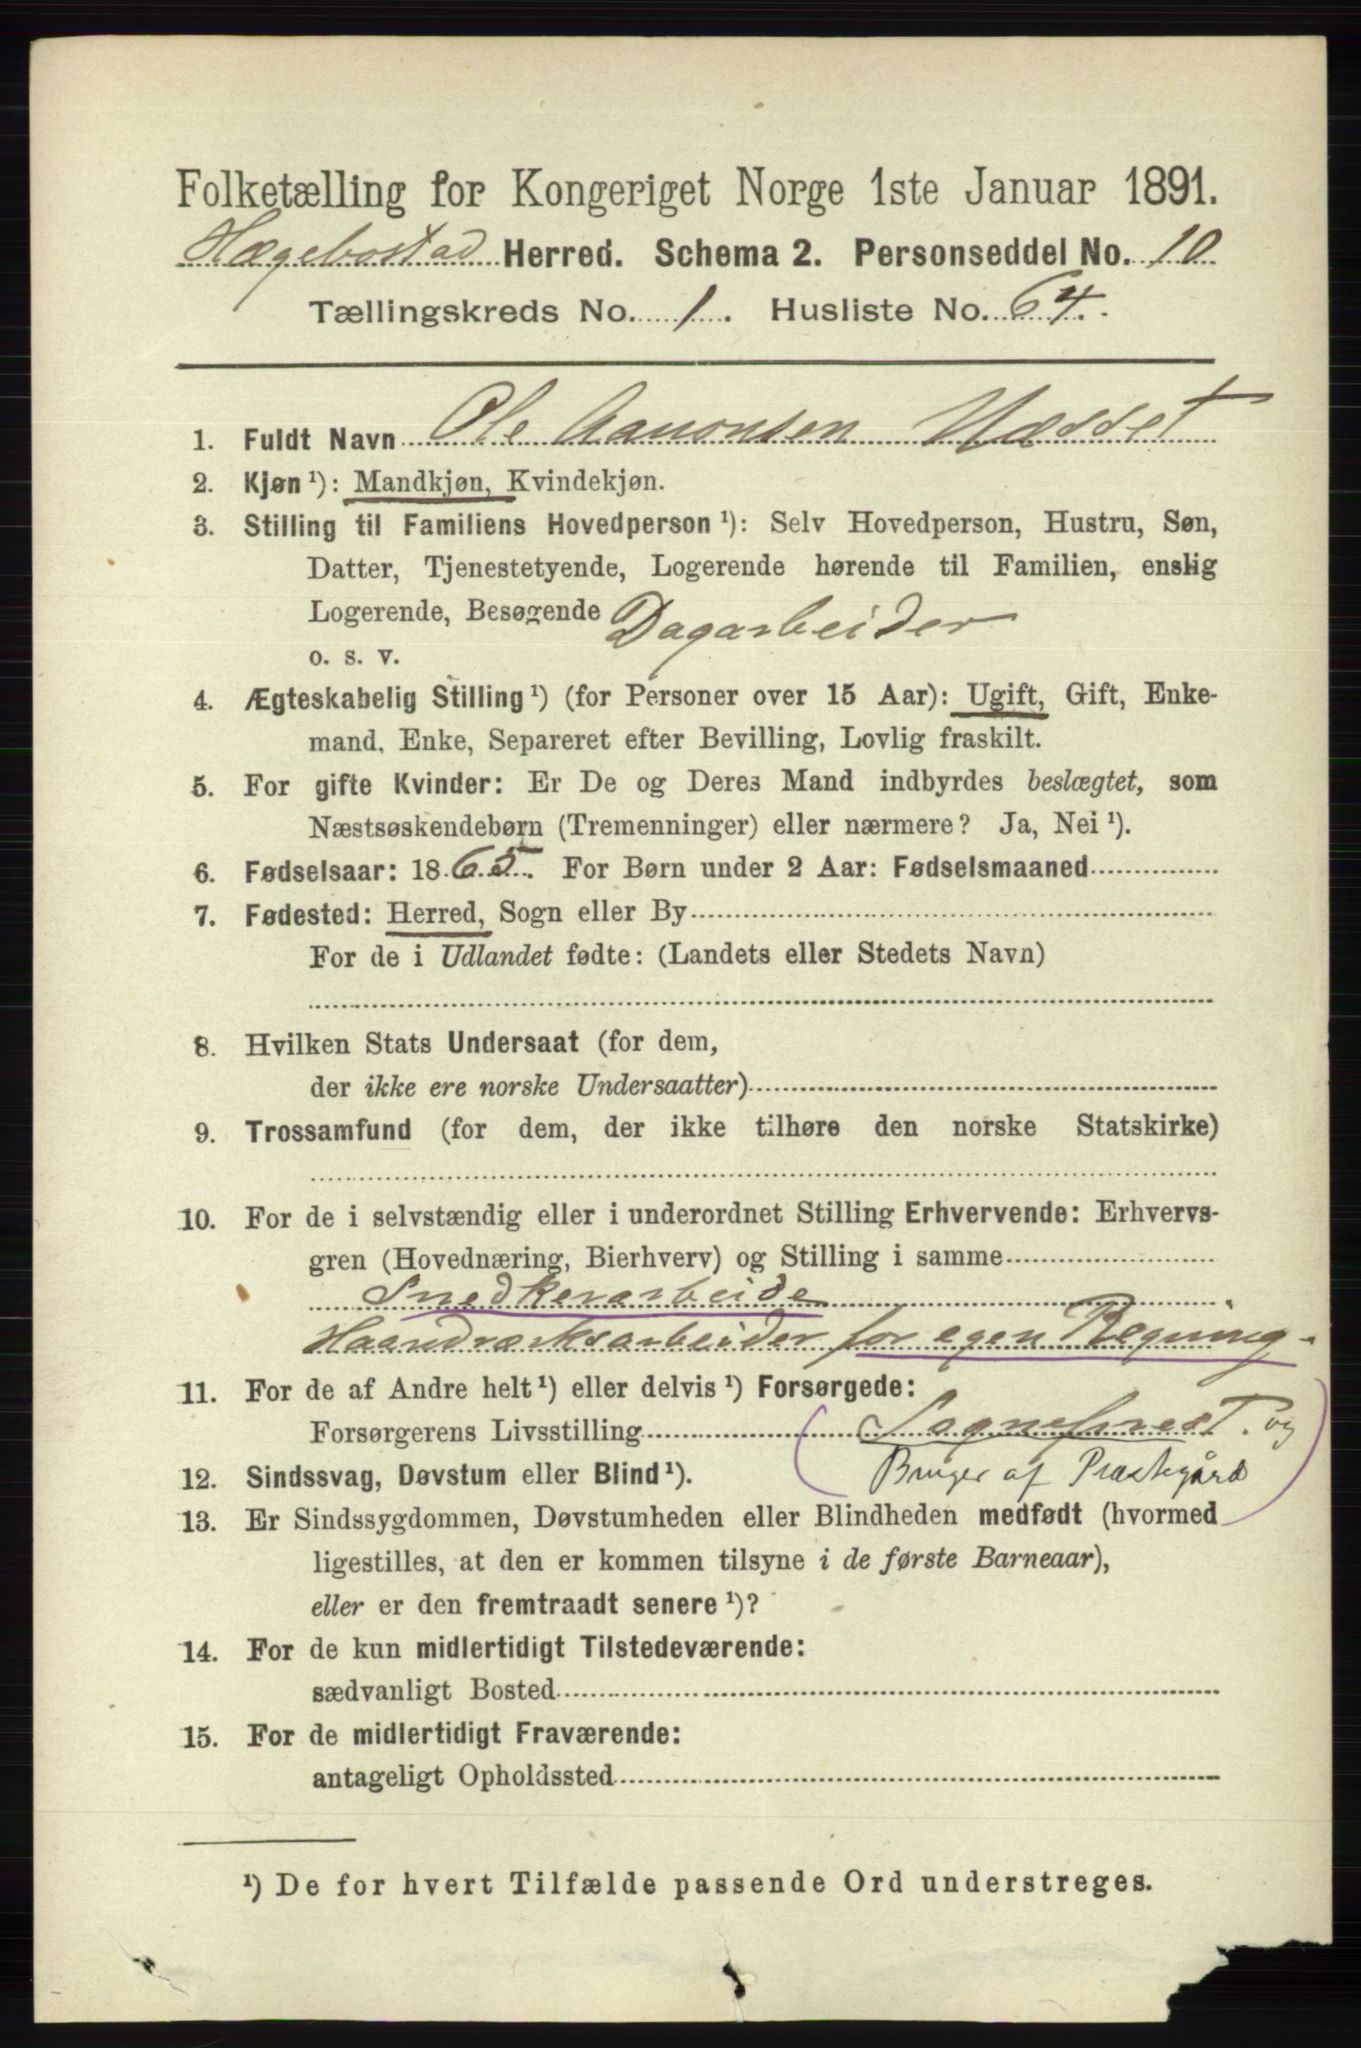 Folketælling for Kongeriget Norge 1ste Januar 1891.
Hægebostad Herred. Schema 2. Personseddel No. 10
Tællingskreds No. 1. Husliste No. 64.
1. Fuldt Navn Ole Aanonsen Næsset
2. Kjøn ¹): Mandkjøn, Kvindekjøn.
3. Stilling til Familiens Hovedperson ¹): Selv Hovedperson, Hustru, Søn,
Datter, Tjenestetyende, Logerende hørende til Familien, enslig
Logerende, Besøgende Dagarbeider
o. s. v.
4. Ægteskabelig Stilling ¹) (for Personer over 15 Aar): Ugift, Gift, Enke-
mand, Enke, Separeret efter Bevilling, Lovlig fraskilt.
5. For gifte Kvinder: Er De og Deres Mand indbyrdes beslægtet, som
Næstsøskendebørn (Tremenninger) eller nærmere? Ja, Nei ¹).
6. Fødselsaar: 1865. For Børn under 2 Aar: Fødselsmaaned
7. Fødested: Herred, Sogn eller By
For de i Udlandet fødte: (Landets eller Stedets Navn)
8. Hvilken Stats Undersaat (for dem,
der ikke ere norske Undersaatter)
9. Trossamfund (for dem, der ikke tilhøre den norske Statskirke)
10. For de i selvstændig eller i underordnet Stilling Erhvervende: Erhvervs-
gren (Hovednæring, Bierhverv) og Stilling i samme
Snedkerarbeide
Haandværksarbeider for egen Regning.
11. For de af Andre helt ¹) eller delvis ¹) Forsørgede:
Forsørgerens Livsstilling (Sognepræst. og
12. Sindssvag, Døvstum eller Blind ¹). Bruger af Præstegård)
13. Er Sindssygdommen, Døvstumheden eller Blindheden medfødt (hvormed
ligestilles, at den er kommen tilsyne i de første Barneaar),
eller er den fremtraadt senere ¹)?
14. For de kun midlertidigt Tilstedeværende:
sædvanligt Bosted
15. For de midlertidigt Fraværende:
antageligt Opholdssted
¹) De for hvert Tilfælde passende Ord understreges.